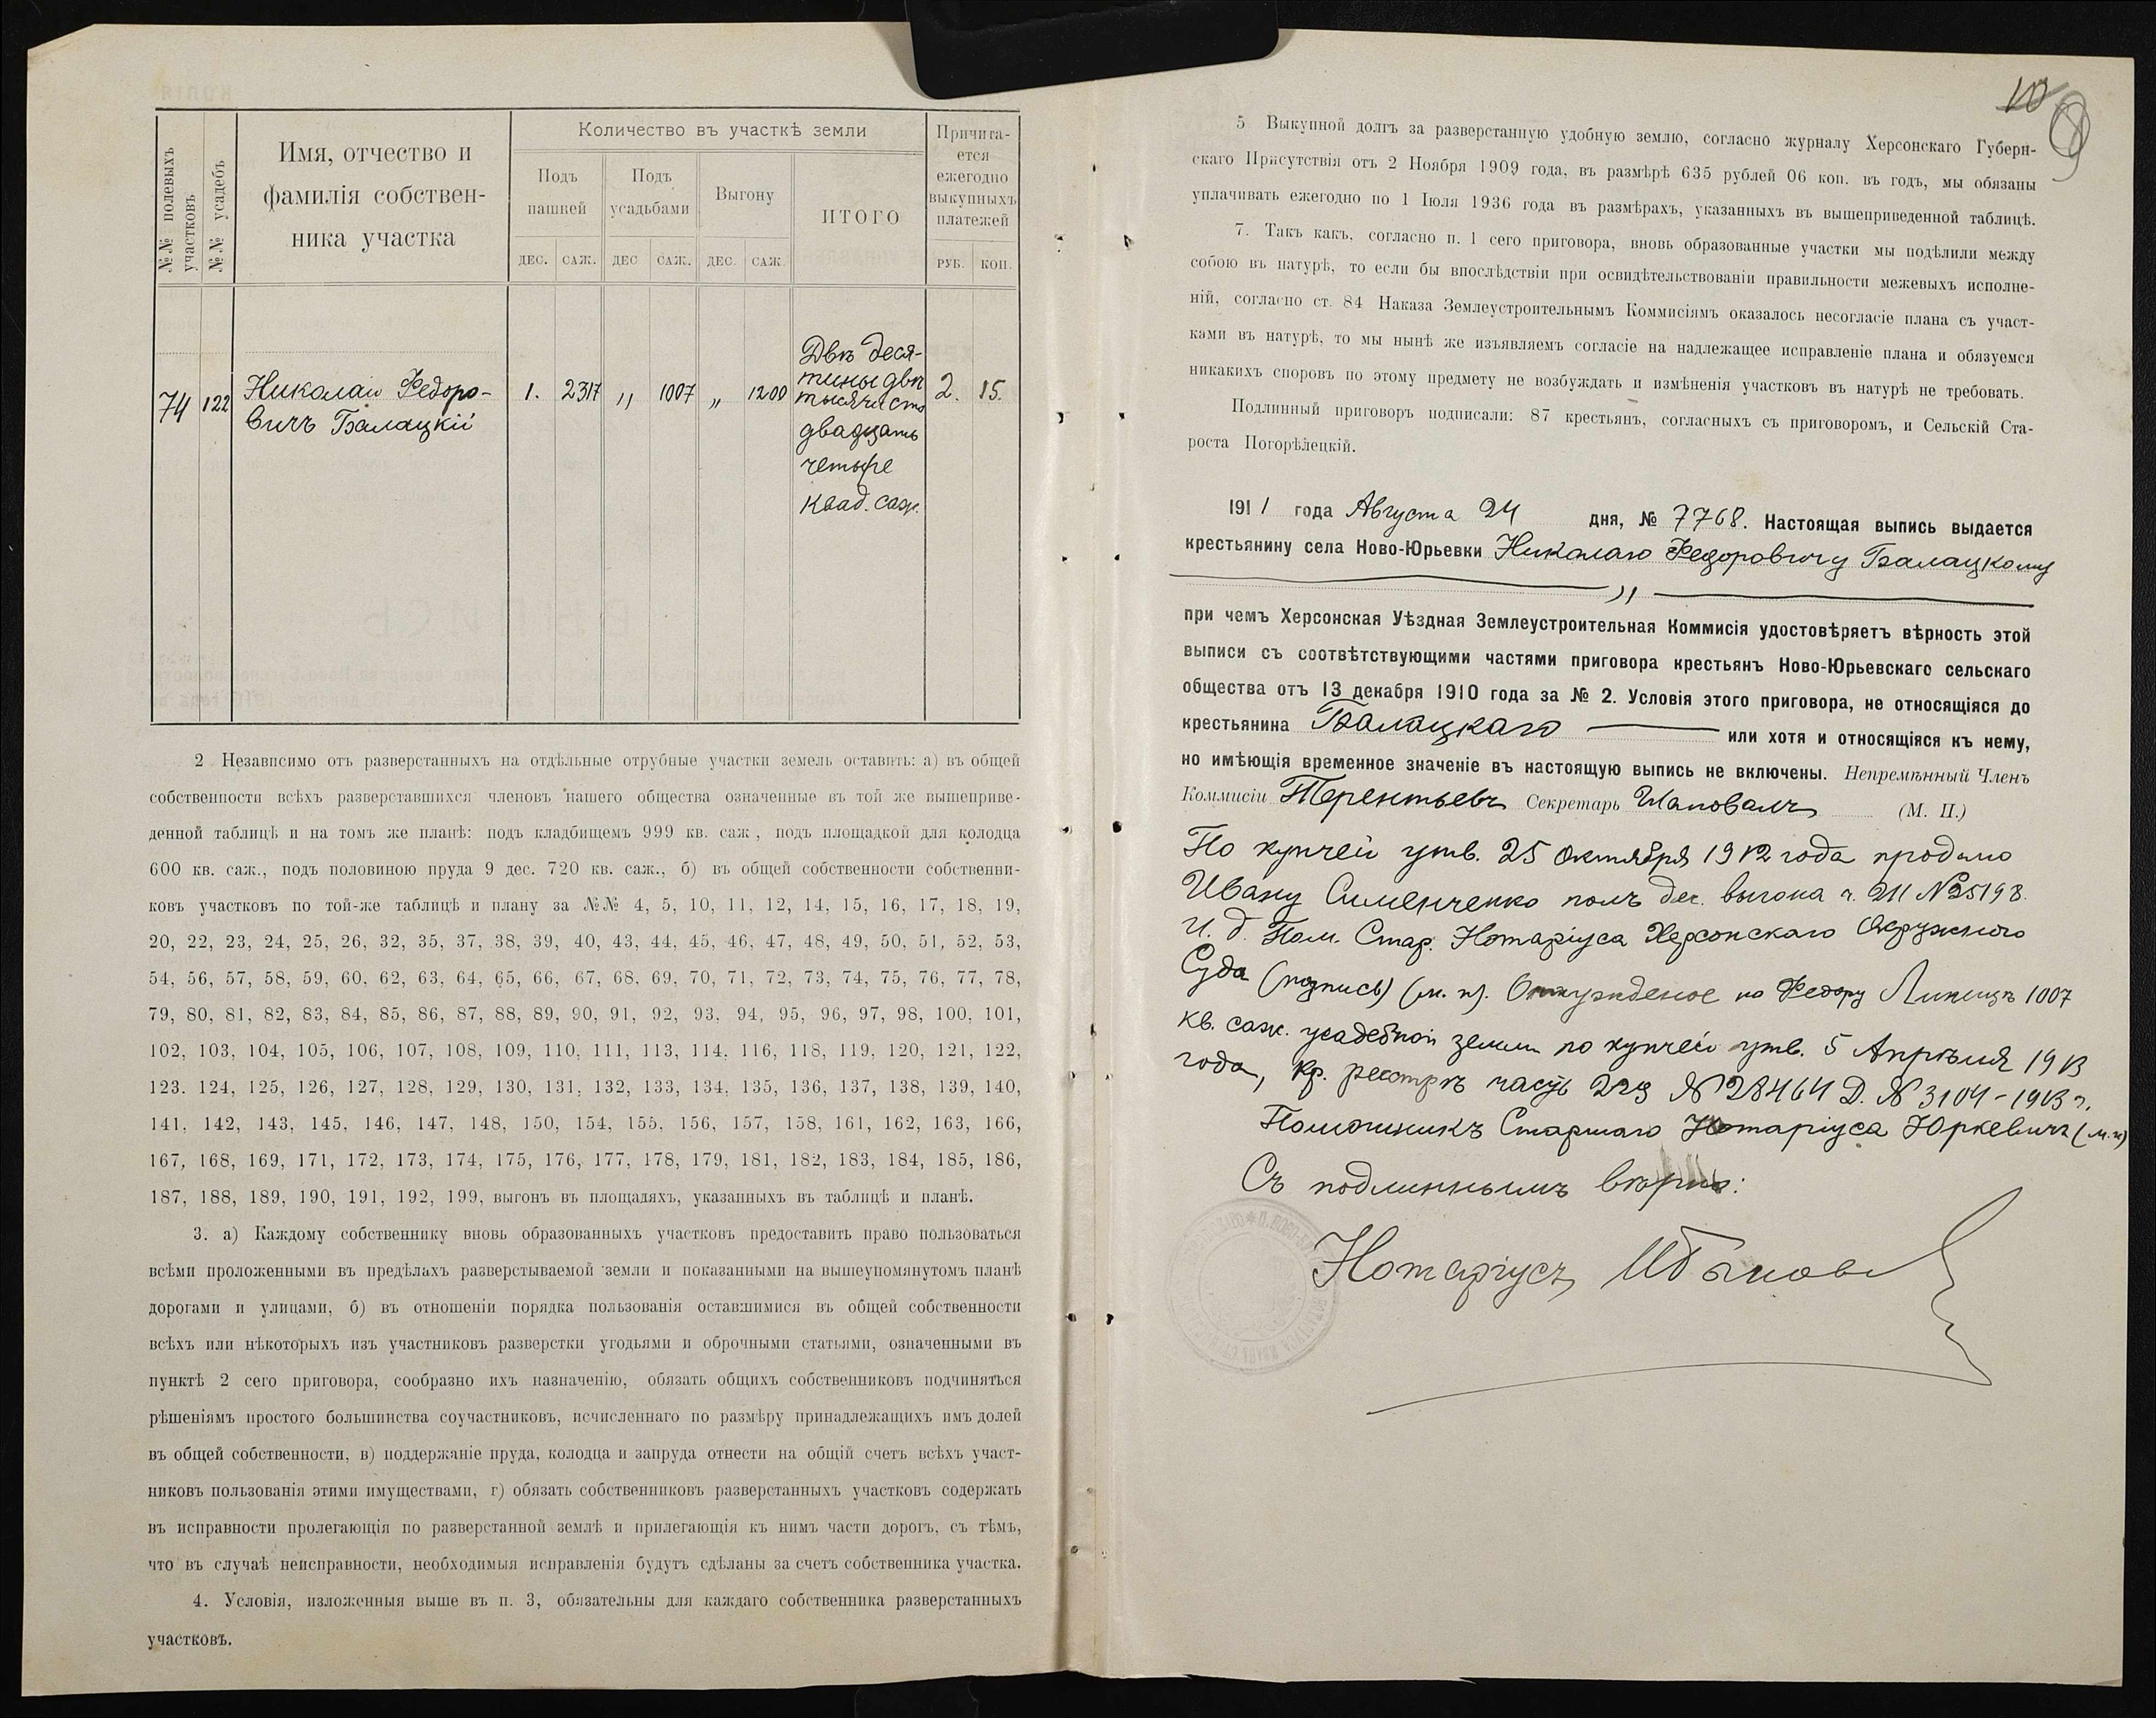 №№ полевыхъ участковъ
№№ усадебъ
Имя, отчество и
фамилія собствен-
ника участка
Количество въ участкѣ земли
Подъ
пашней
Подъ
усадьбами
Выгону
ИТОГО
Причита-
ется
ежегодно
выкупныхъ
платежей
ДЕС. САЖ. ДЕС САЖ. ДЕС. САЖ. РУБ. КОП.
74 122 Николай Федоро-
вичъ Балацкій
1. 2317 „ 1007 „ 1200
Двѣ деся-
тины двѣ
тысячи сто
двадцать
четыре
квад. саж.
2. 15.
2 Независимо отъ разверстанныхъ на отдѣльные отрубные участки земель оставить: а) въ общей
собственности всѣхъ разверставшихся членовъ нашего общества означенные въ той же вышеприве-
денной таблицѣ и на томъ же планѣ: подъ кладбищемъ 999 кв. саж , подъ площадкой для колодца
600 кв. саж., подъ половиною пруда 9 дес. 720 кв. саж., б) въ общей собственности собственни-
ковъ участковъ по той-же таблицѣ и плану за №№ 4, 5, 10, 11, 12, 14, 15, 16, 17, 18, 19,
20, 22, 23, 24, 25, 26, 32, 35, 37, 38, 39, 40, 43, 44, 45, 46, 47, 48, 49, 50, 51, 52, 53,
54, 56, 57, 58, 59, 60, 62, 63, 64, 65, 66, 67, 68, 69, 70, 71, 72, 73, 74, 75, 76, 77, 78,
79, 80, 81, 82, 83, 84, 85, 86, 87, 88, 89, 90, 91, 92, 93, 94, 95, 96, 97, 98, 100, 101,
102, 103, 104, 105, 106, 107, 108, 109, 110, 111, 113, 114, 116, 118, 119, 120, 121, 122,
123. 124, 125, 126, 127, 128, 129, 130, 131, 132, 133, 134, 135, 136, 137, 138, 139, 140,
141, 142, 143, 145, 146, 147, 148, 150, 154, 155, 156, 157, 158, 161, 162, 163, 166,
167, 168, 169, 171, 172, 173, 174, 175, 176, 177, 178, 179, 181, 182, 183, 184, 185, 186,
187, 188, 189, 190, 191, 192, 199, выгонъ въ площадяхъ, указанныхъ въ таблицѣ и планѣ.
3. а) Каждому собственнику вновь образованныхъ участковъ предоставить право пользоваться
всѣми проложенными въ предѣлахъ разверстываемой земли и показанными на вышеупомянутомъ планѣ
дорогами и улицами, б) въ отношеніи порядка пользованія оставшимися въ общей собственности
всѣхъ или нѣкоторыхъ изъ участниковъ разверстки угодьями и оброчными статьями, означенными въ
пунктѣ 2 сего приговора, сообразно ихъ назначенію, обязать общихъ собственниковъ подчиняться
рѣшеніямъ простого большинства соучастниковъ, исчисленнаго по размѣру принадлежащихъ имъ долей
въ общей собственности, в) поддержаніе пруда, колодца и запруда отнести на общій счетъ всѣхъ участ-
никовъ пользованія этими имуществами, г) обязать собственниковъ разверстанныхъ участковъ содержать
въ исправности пролегающія по разверстанной землѣ и прилегающія къ нимъ части дорогъ, съ тѣмъ,
что въ случаѣ неисправности, необходимыя исправленія будутъ сдѣланы за счетъ собственника участка.
4. Условія, изложенныя выше въ п. 3, обязательны для каждаго собственника разверстанныхъ
участковъ.
10
5 Выкупной долгъ за разверстанную удобную землю, согласно журналу Херсонскаго Губерн-
скаго Присутствія отъ 2 Ноября 1909 года, въ размѣрѣ 635 рублей 06 коп. въ годъ, мы обязаны
уплачивать ежегодно по 1 Іюля 1936 года въ размѣрахъ, указанныхъ въ вышеприведенной таблицѣ.
7. Такъ какъ, согласно п. 1 сего приговора, вновь образованные участки мы подѣлили между
собою въ натурѣ, то если бы впослѣдствіи при освидѣтельствованіи правильности межевыхъ исполне-
ній, согласно ст. 84 Наказа Землеустроительнымъ Коммисіямъ оказалось несогласіе плана съ участ-
ками въ натурѣ, то мы нынѣ же изъявляемъ согласіе на надлежащее исправленіе плана и обязуемся
никакихъ споровъ по этому предмету не возбуждать и измѣненія участковъ въ натурѣ не требовать.
Подлинный приговоръ подписали: 87 крестьянъ, согласныхъ съ приговоромъ, и Сельскій Ста-
роста Погорѣлецкій.
1911 года Августа 24 дня, № 7768. Настоящая выпись выдается
крестьянину села Ново-Юрьевки Николаю Федоровичу Балацкому
„
при чемъ Херсонская Уѣздная Землеустроительная Коммисія удостовѣряетъ вѣрность этой
выписи съ соотвѣтствующими частями приговора крестьянъ Ново-Юрьевскаго сельскаго
общества отъ 13 декабря 1910 года за № 2. Условія этого приговора, не относящіяся до
крестьянина Балацкаго или хотя и относящіяся къ нему,
но имѣющія временное значеніе въ настоящую выпись не включены. Непремѣнный Членъ
Коммисіи Терентьевъ Секретарь Шаповалъ (М. П.)
По купчей утв. 25 октября 1912 года продано
Ивану Сименченко полъ дес. выгона ч. 211 № 25198.
И. д. Пом. Стар. Нотаріуса Херсонскаго Окружного
Суда (подпись) (м. п). Отчужденое по Федору 1007
кв. саж. усадебной земли по купчей утв. 5 Апрѣля 1913
года, Кр. реестръ часть 229 № 28464 Д. № 3104-1913 г.
Помощникъ Старшаго Нотаріуса Юркевичъ (м. п)
Съ подлиннымъ вѣрно:
Нотаріусъ